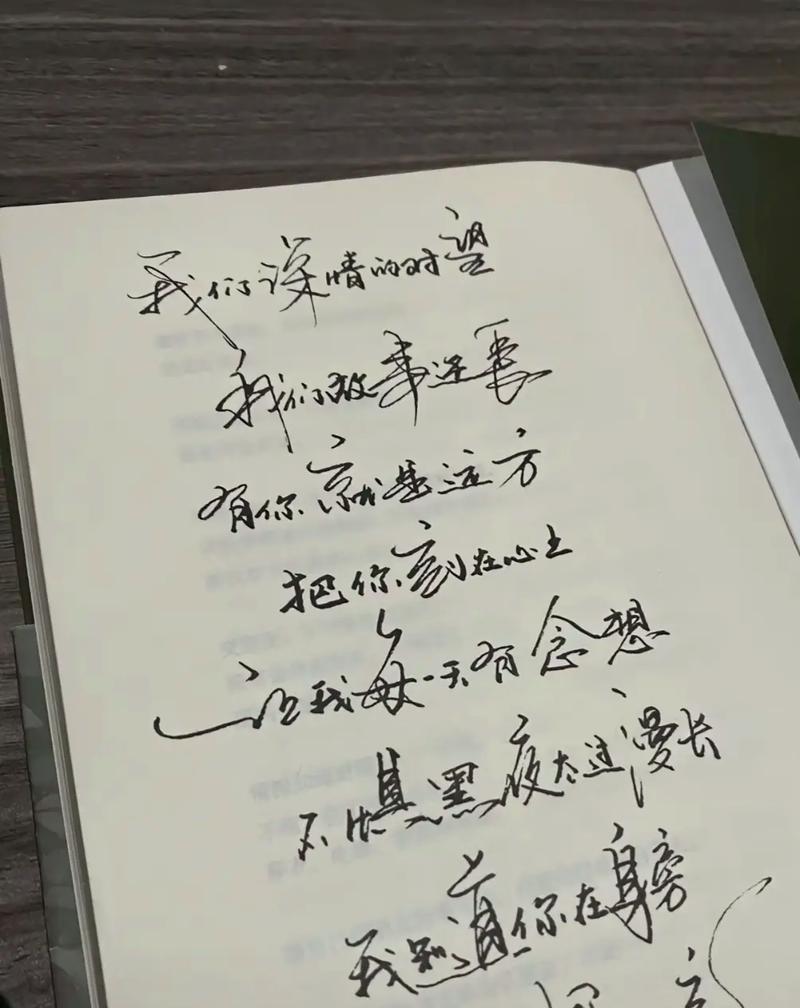 我们深情的对望
我们故事还长
有你就是远方
把你刻在心上
让我每一天有念想
不惧黑夜太过漫长
我知道你在身旁